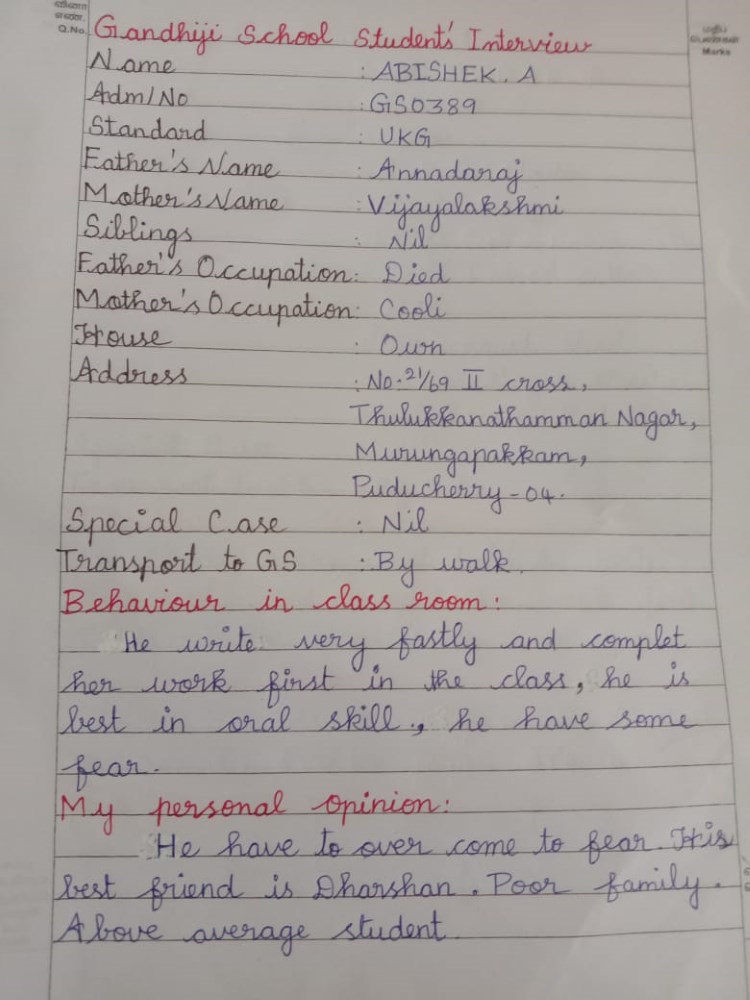 Q.No.
Marks
Gandhiji School Student's Interview
Name : ABISHEK. A
Adm/No : GS0389
Standard : UKG
Father's Name : Annadaraj
Mother's Name : Vijayalakshmi
Siblings : Nil
Father's Occupation: Died
Mother's Occupation: Cooli
House : Own
Address : No.21/69 II cross,
Thulukkanathamman Nagar,
Murungapakkam,
Puducherry-04.
Special Case : Nil
Transport to GS : By walk.
Behaviour in class room:
He write very fastly and complet
her work first in the class, he is
best in oral skill., he have some
fear.
My personal opinion:
He have to over come to fear. His
best friend is Dharshan. Poor family.
Above average student.